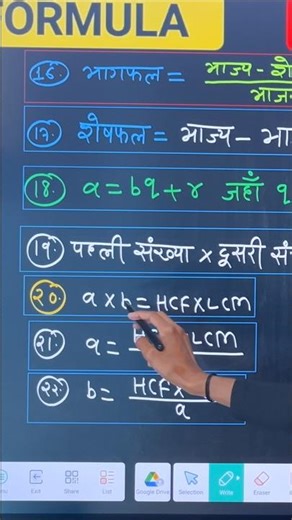 FORMULA
१६. भागफल = भाज्य - शे
भाज
१७. शेषफल = भाज्य - भा
१८. a = bq + r जहाँ q
१९. पहली संख्या × दूसरी सं
२०. a × b = HCF × LCM
२१. a = LCM
२२. b = HCF ×
a
Exit
Share
List
Google Drive
Selection
Write
Eraser